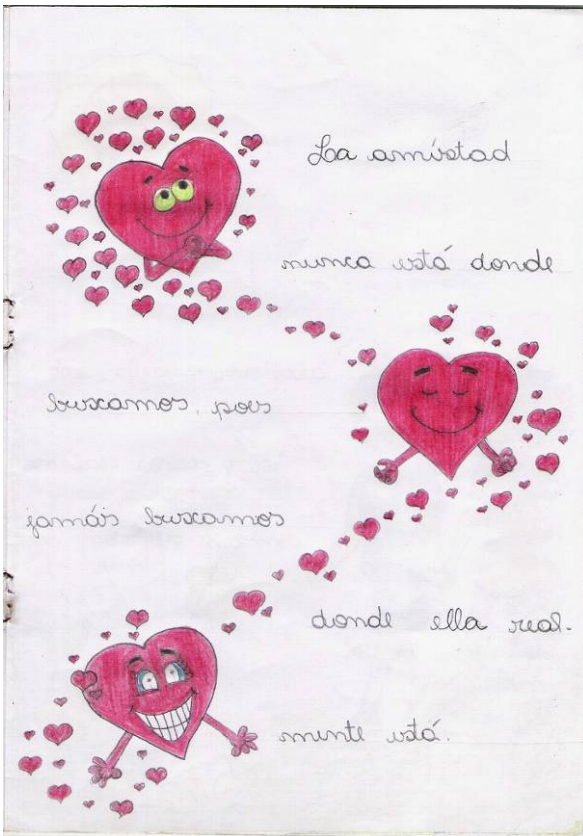 La amistad
nunca está donde
buscamos, pois
jamáis buscamos
donde ella real-
mente está.